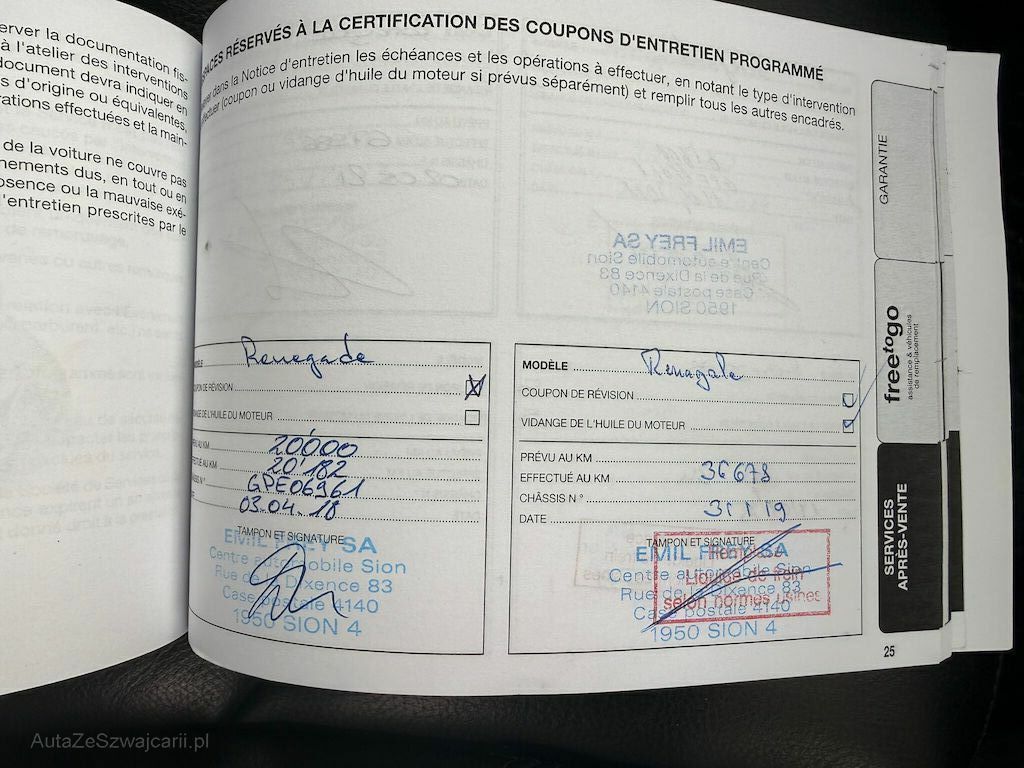 erver la documentation fis-
à l'atelier des interventions
document devra indiquer en
s d'origine ou équivalentes,
rations effectuées et la main-
de la voiture ne couvre pas
nements dus, en tout ou en
osence ou la mauvaise exé-
'entretien prescrites par le
PACES RÉSERVÉS À LA CERTIFICATION DES COUPONS D'ENTRETIEN PROGRAMMÉ
dans la Notice d'entretien les échéances et les opérations à effectuer, en notant le type d'intervention
ectuer (coupon ou vidange d'huile du moteur si prévus séparément) et remplir tous les autres encadrés.
GARANTIE
freetogo
assistance & véhicules
de remplacement
SERVICES
APRÈS-VENTE
Renegade
PON DE RÉVISION
NGE DE L'HUILE DU MOTEUR
ÉVU AU KM 20'000
ECTUÉ AU KM 20'182
ASSIS N° GPE06961
03.04.18
TAMPON ET SIGNATURE
EMIL FREY SA
Centre automobile Sion
Rue de la Dixence 83
Case postale 4140
1950 SION 4
MODÈLE Renegade
COUPON DE RÉVISION
VIDANGE DE L'HUILE DU MOTEUR
PRÉVU AU KM
EFFECTUÉ AU KM 36678
CHÂSSIS N°
DATE 31 1 19
TAMPON ET SIGNATURE
EMIL FREY SA
Centre automobile Sion
Rue de la Dixence 83
Case postale 4140
1950 SION 4
Liquide de frein
selon normes usines
25
AutaZeSzwajcarii.pl